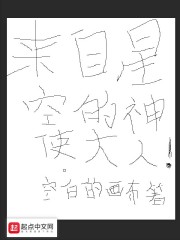 来自星
空的神
使大人!
空白的画布著
起点中文网